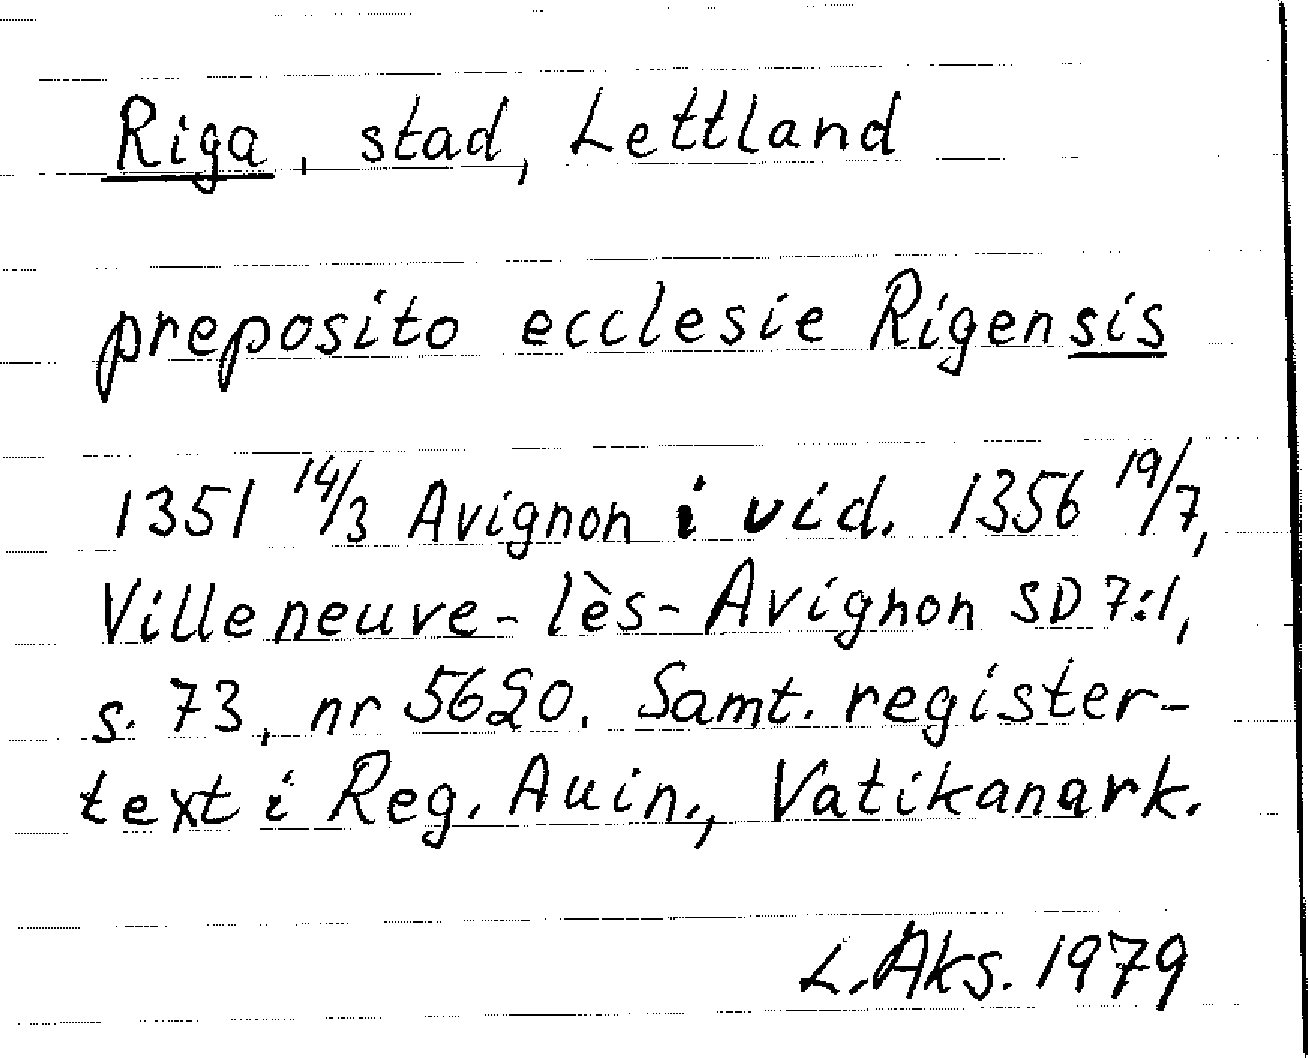 Riga, stad, Lettland
preposito ecclesie Rigensis
1351 14/3 Avignon i vid. 1356 19/7,
Villeneuve-lès-Avignon SD 7:1,
s. 73, nr 5620. Samt. register-
text i Reg. Auin., Vatikanark.
L. Aks. 1979